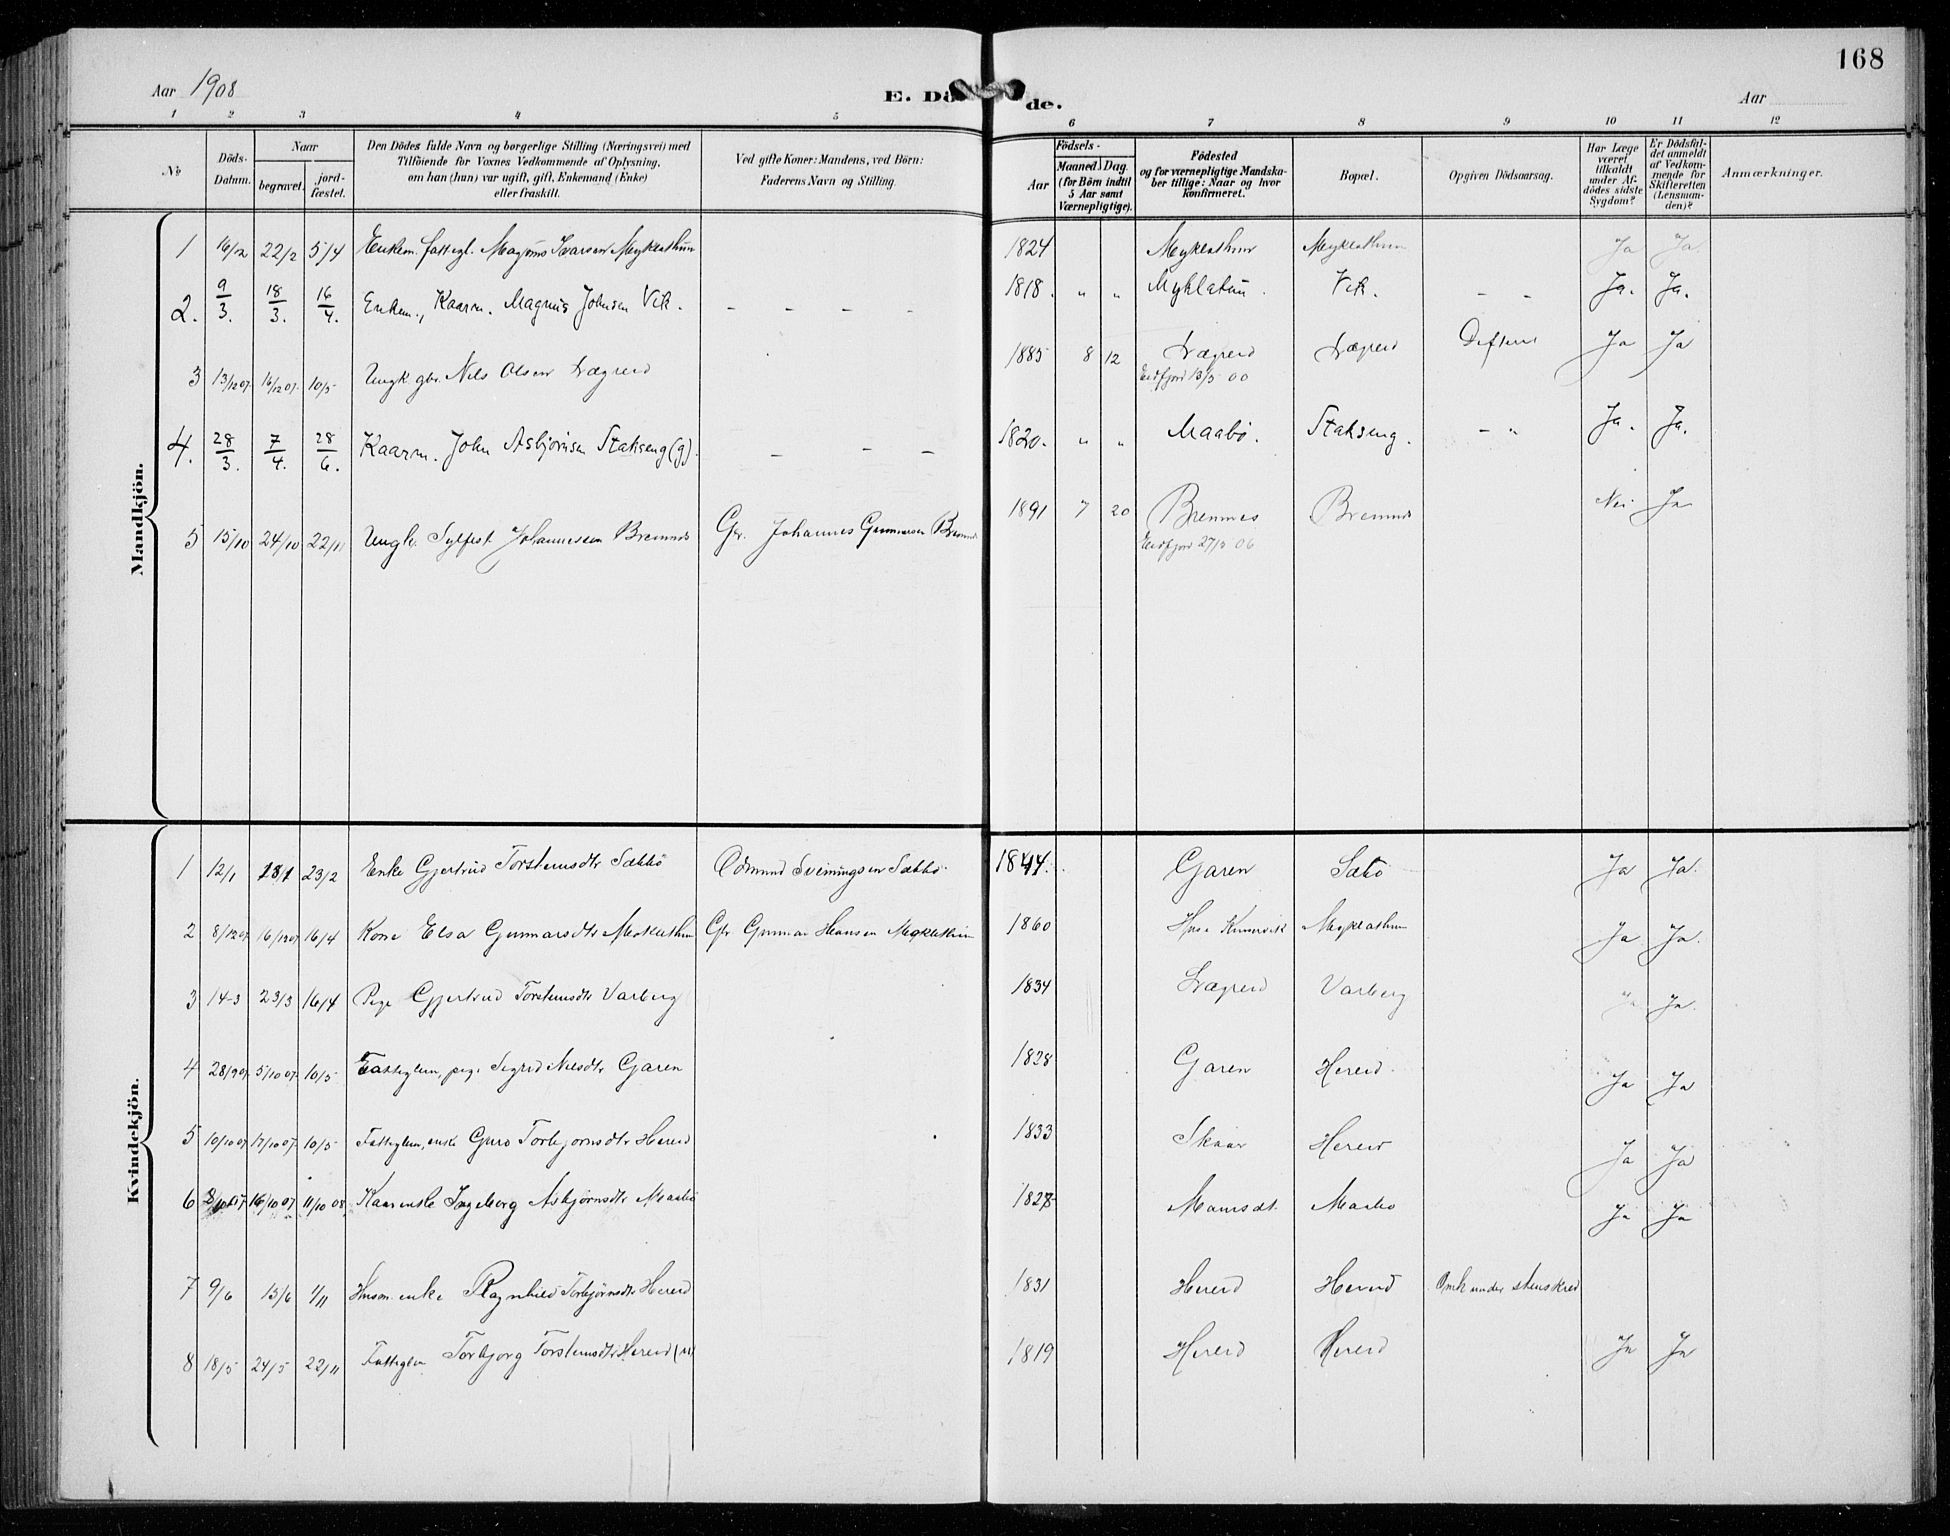 168
Aar 1908
E. Dö de.
Aar
1 2 3 4 5 6 7 8 9 10 11 12
No
Döds-Datum.
Naar
begravet.
jord-fæstet.
Den Dödes fulde Navn og borgerlige Stilling (Næringsvei) med
Tilföiende for Voxnes Vedkommende af Oplysning,
om han (hun) var ugift, gift, Enkemand (Enke)
eller fraskilt.
Ved gifte Koner: Mandens, ved Börn:
Faderens Navn og Stilling.
Födsels-
Aar
Maaned. Dag.
(for Börn indtil
5 Aar samt
Værnepligtige).
Födested
og for værnepligtige Mandska-
ber tillige: Naar og hvor
konfirmeret.
Bopæl.
Opgiven Dödsaarsag.
Har Læge
været
tilkaldt
under Af-
dödes sidste
Sygdom?
Er Dödsfal-
det anmeldt
af Vedkom-
mende for
Skifteretten
(Lensman-
den)?
Anmærkninger.
Mandkjön.
1 16/2 22/2 5/4 Enkem. fattigl. Magnus Ivarsen Myklathun 1824 Myklathun Myklathun Ja Ja.
2. 9/3. 18/3. 16/4. Enkem., Kaarm. Magnus Johnsen Vik. - - - - 1818. " " Myklatun. Vik. - - Ja. Ja.
3 13/12 07. 16/12 07. 10/5 Ungk. gbr. Nils Olsen Lægreid 1885 8 12 Lægreid Lægreid Difteri Ja Ja
Eidfjord 13/5 00
4. 28/3. 7/4. 28/6. Kaarm. John Asbjörnsen Stakseng (g). - - - 1820. " " Maabö. Stakseng. - " Ja. Ja.
5 15/10 24/10 22/11 Ungk. Sylfest Johannesen Bremnes Gbr. Johannes Gunnarsen Bremnes 1891 7 20 Bremnes Bremnes Nei Ja
Eidfjord 27/5 06
Kvindekjön.
1 12/1 18/1 23/2 Enke Gjertrud Torsteinsdtr Sæbbö Odmund Sveinungsen Sæbbö. 1844. Garen Sæbö Ja Ja.
2 8/12 07. 16/12 07 16/4 Kone Elsa Gunnarsdtr Myklathun Gbr Gunnar Hansen Myklathun 1860 Huse Kinservik Myklathun Ja Ja.
3 14-3 23/3 16/4 Pige Gjertrud Torsteinsdtr Varberg 1834 Lægreid Varberg Ja Ja.
4 28/9 07. 5/10 07. 10/5 Fattiglem, pige Sigrid Nilsdtr Garen 1828 Garen Hereid. Ja Ja
5 10/10 07 17/10 07. 10/5 Fattiglem, enke Guro Torbjornsdtr Hereid 1833 Skaar Hereid Ja Ja
6 8/10 07 16/10 07 11/10 08. Kaarenke Ingeborg Asbjørnsdtr Maabö 1828 Maursdt. Maabö Ja Ja
7 9/6 15/6 1/11 Husm. enke Ragnhild Torbjørnsdtr Hereid 1831 Hereid Hereid Omk under stenskred
8 18/5 24/5 22/11 Fattiglem Torbjorg Torsteinsdtr Hereid (u) 1819 Hereid Hereid Ja Ja